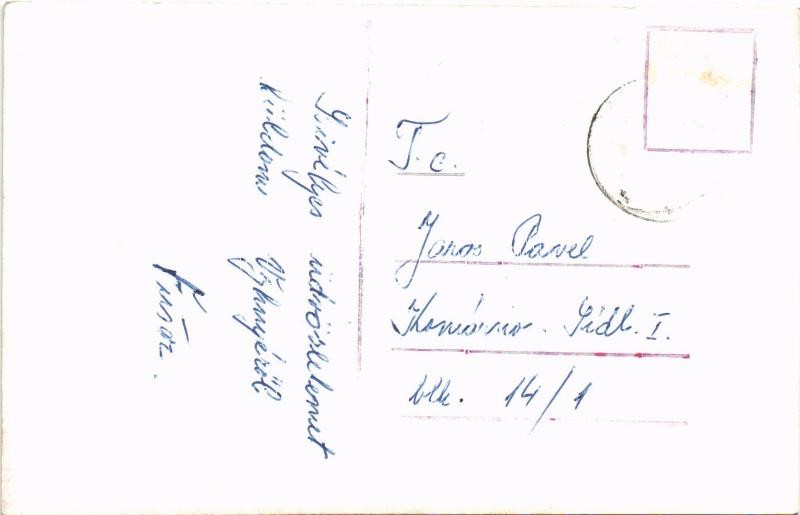 Szívélyes üdvözletemet
küldöm Vyhnyéről
T. c.
Jaros Pavel
Komárno. Sídl. I.
blk. 14/1